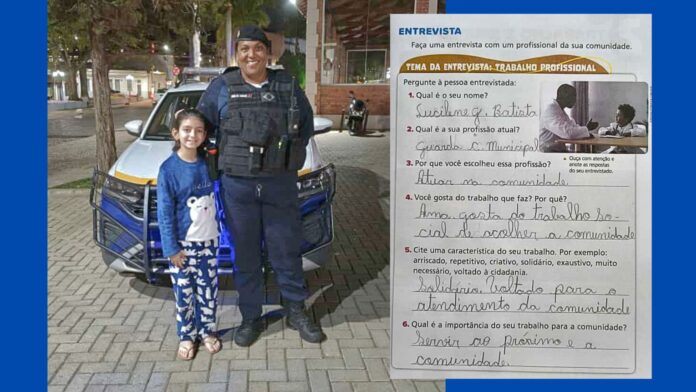 ENTREVISTA
Faça uma entrevista com um profissional da sua comunidade.
TEMA DA ENTREVISTA: TRABALHO PROFISSIONAL
Pergunte à pessoa entrevistada:
1. Qual é o seu nome?
Lucilene G. Batista
2. Qual é a sua profissão atual?
Guarda C. Municipal
Ouça com atenção e
anote as respostas
do seu entrevistado.
3. Por que você escolheu essa profissão?
Atuar na comunidade
4. Você gosta do trabalho que faz? Por quê?
Ama gosta do trabalho so-
cial de acolher a comunidade
5. Cite uma característica do seu trabalho. Por exemplo:
arriscado, repetitivo, criativo, solidário, exaustivo, muito
necessário, voltado à cidadania.
Solidário. Voltado para o
atendimento da comunidade
6. Qual é a importância do seu trabalho para a comunidade?
Servir ao próximo e a
comunidade.